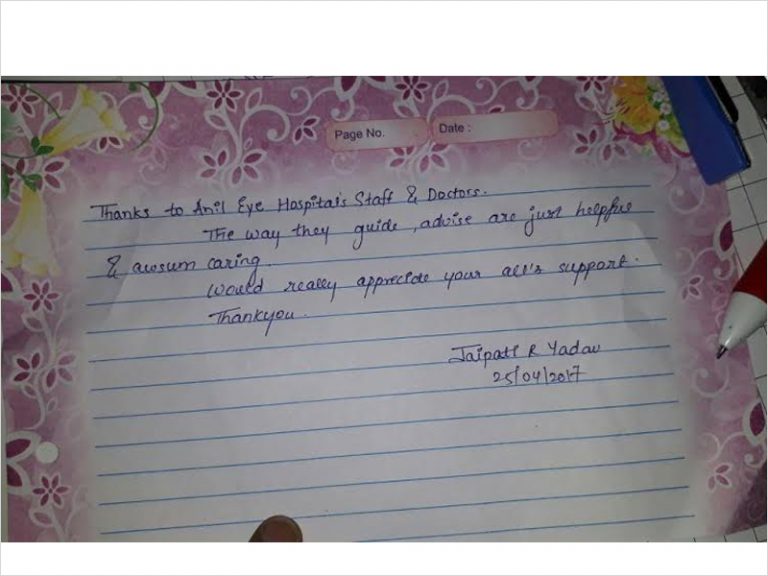 Page No.
Date :
Thanks to Anil Eye Hospital's Staff & Doctors.
The way they guide, advise are just helpful
& awsum caring.
Would really apprecide your all's support.
Thankyou.
Jaipati R Yadav
25/04/2017